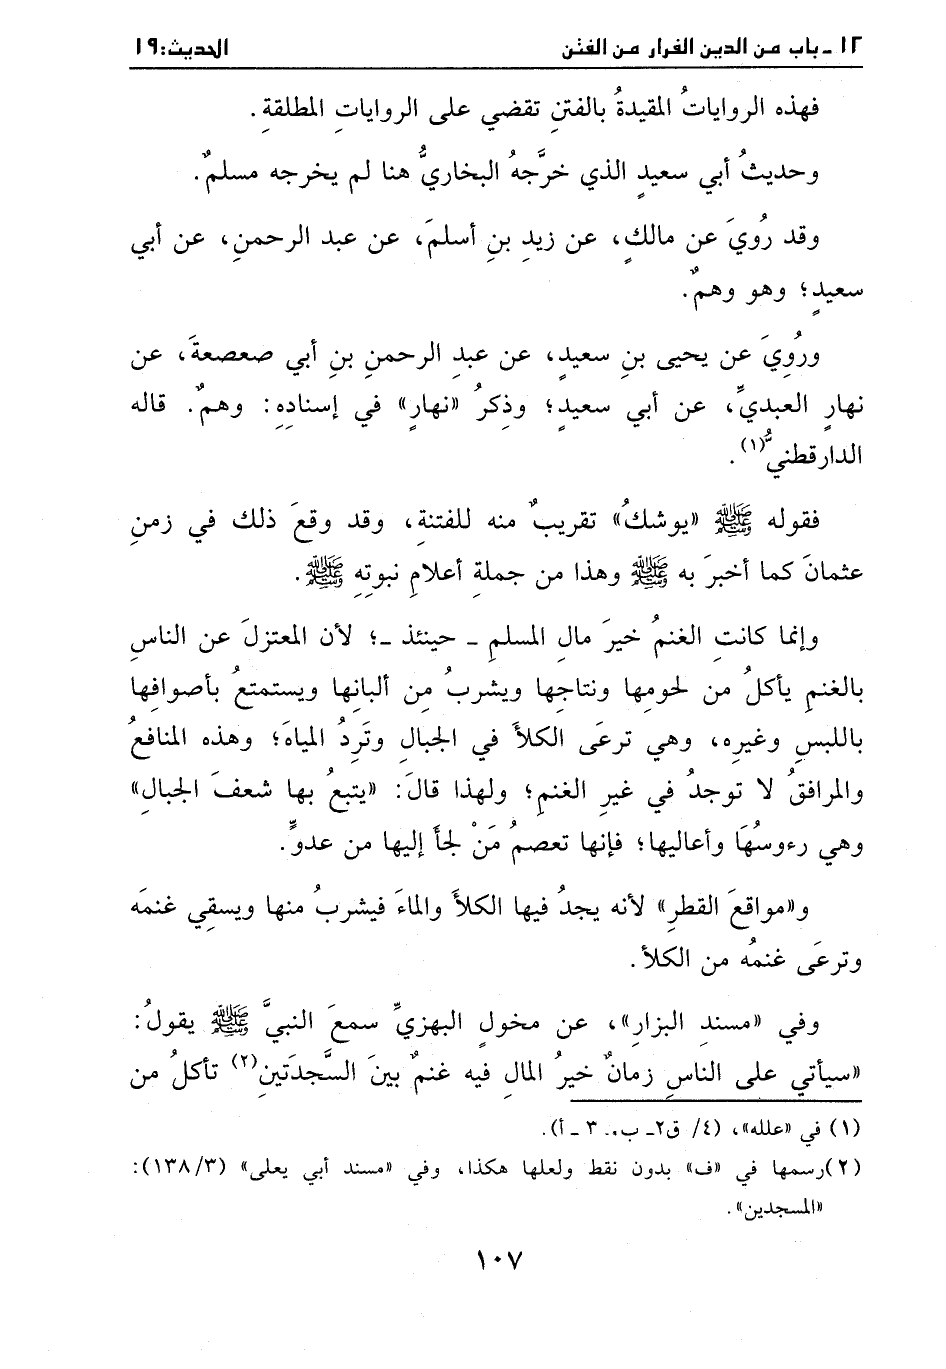 ١٢ ـ باب من الدين الفرار من الفتن الحديث: ١٩
فهذه الرواياتُ المقيدةُ بالفتنِ تقضي على الرواياتِ المطلقةِ.
وحديثُ أبي سعيدٍ الذي خرَّجهُ البخاريُّ هنا لم يخرجه مسلمٌ.
وقد رُويَ عن مالكٍ، عن زيدِ بنِ أسلمَ، عن عبد الرحمنِ، عن أبي
سعيدٍ؛ وهو وهمٌ.
ورُوِيَ عن يحيى بنِ سعيدٍ، عن عبدِ الرحمنِ بنِ أبي صعصعةَ، عن
نهارٍ العبديِّ، عن أبي سعيدٍ؛ وذِكرُ «نهارٍ» في إسنادِهِ: وهمٌ. قاله
الدارقطنيُّ(١).
فقوله ﷺ «يوشكُ» تقريبٌ منه للفتنةِ، وقد وقعَ ذلك في زمنِ
عثمانَ كما أخبرَ به ﷺ وهذا من جملةِ أعلامِ نبوتِهِ ﷺ.
وإنما كانتِ الغنمُ خيرَ مالِ المسلمِ ـ حينئذ ـ؛ لأن المعتزلَ عن الناسِ
بالغنمِ يأكلُ من لحومِها ونتاجِها ويشربُ مِن ألبانِها ويستمتعُ بأصوافِها
باللبسِ وغيرِه، وهي ترعَى الكلأَ في الجبالِ وتَرِدُ المياهَ؛ وهذه المنافعُ
والمرافقُ لا توجدُ في غيرِ الغنمِ؛ ولهذا قالَ: «يتبعُ بها شعفَ الجبالِ»
وهي رءوسُهَا وأعاليها؛ فإنها تعصمُ مَنْ لجأَ إليها من عدوٍّ.
و«مواقعَ القطرِ» لأنه يجدُ فيها الكلأَ والماءَ فيشربُ منها ويسقِي غنمَه
وترعَى غنمُه من الكلأ.
وفي «مسندِ البزارِ»، عن مخولٍ البهزيِّ سمعَ النبيَّ ﷺ يقولُ:
«سيأتي على الناسِ زمانٌ خيرُ المالِ فيه غنمٌ بينَ السَّجدَتينِ(٢) تأكلُ من
(١) في «علله»، (٤/ ق٢ـ ب، ـ ٣ ـ أ).
(٢) رسمها في «ف» بدون نقط ولعلها هكذا، وفي «مسند أبي يعلى» (١٣٨/٣):
«المسجدين».
١٠٧